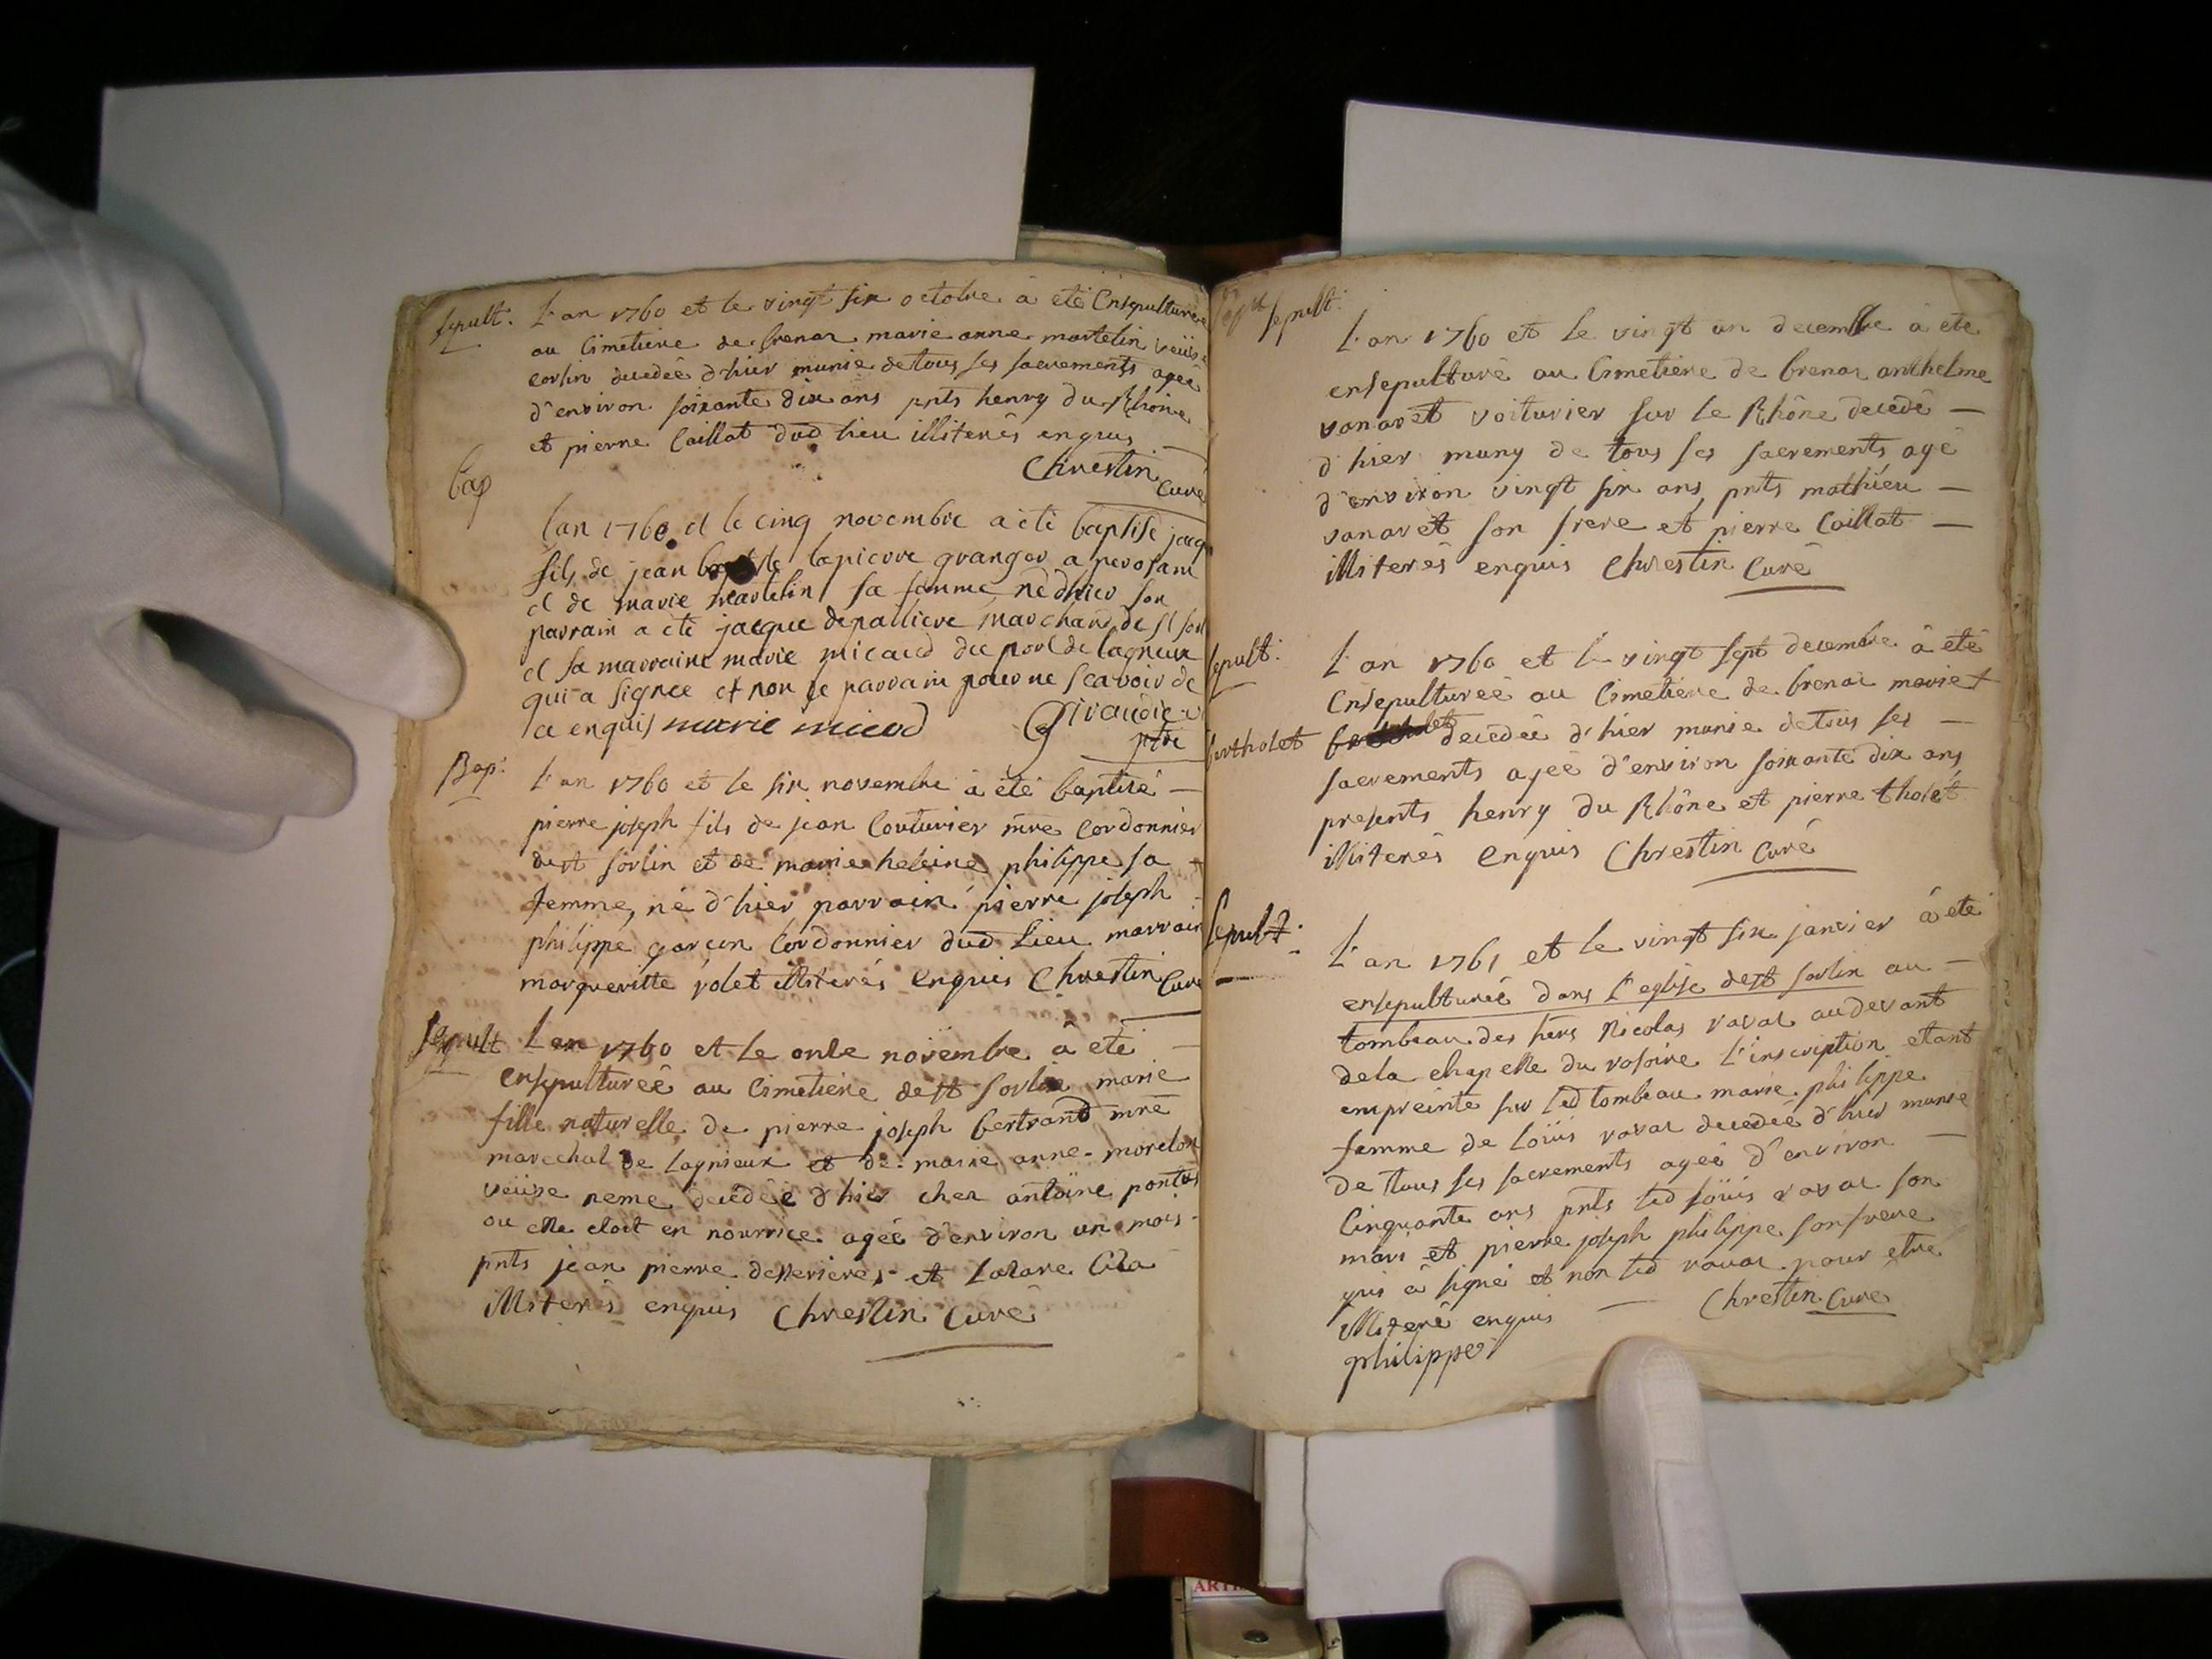 sepult. L'an 1760 et le vingt six octobre à eté Ensepulturée
au Cimetiere de brenas marie anne martelin veüve
corlin decedeé d'hier munie de tous ses sacrements ageé
d'environ soixante dix ans pnts henry du Rhône
et pierre Caillat dud lieu illiterés enquis
Chrestin Curé
bap
Lan 1760 et le cinq novembre a été baptisé jacq
fils de jean lapierre granger a
et de marie martelin sa femme né dhier son
parrain a été jacque depalliere marchand de st sorl
et sa marraine marie micaud du port de lagnieux
qui a signee et non le parrain pour ne scavoir de
ce enquis marie micod
ptre
Bap. L'an 1760 et le six novembre à eté baptisé
pierre joseph fils de jean Couturier mre Cordonnier
de st sorlin et de marie heleine philippe sa
femme, né d'hier parrain pierre joseph
philippe garçon Cordonnier dud Lieu marrain
margueritte volet illiterés enquis Chrestin Curé
Sepult L'an 1760 et le onze novembre à eté
ensepultureé au Cimetiere de st Sorlin marie
fille naturelle de pierre joseph bertrand mre
marechal de Lagnieux et de marie anne morelon
veüve reme decedeé d'hier chez antoine pontus
ou elle etoit en nourrice ageé d'environ un mois
pnts jean pierre desserieres et Lazare
illiterés enquis Chrestin Curé
sepult.
L'an 1760 et le vingt un decembre à eté
ensepulturé au Cimetiere de brenas anthelme
vanaret voiturier sur le Rhône decedé
d'hier muny de tous ses sacrements agé
d'environ vingt six ans, pnts mathieu
vanaret son frere et pierre Caillat
illiterés enquis Chrestin Curé
sepult. L'an 1760 et le vingt sept decembre à eté
Ensepultureé au Cimetiere de brenas marie
bertholet decedeé d'hier munie de tous ses
sacrements ageé d'environ soixante dix ans
presents henry du Rhône et pierre tholet
illiterés Enquis Chrestin Curé
Sepult.
L'an 1761 et le vingt six janvier à eté
ensepultureé dans l'eglise de st sorlin au
tombeau des hers Nicolas ravat au devant
de la chapelle du rosaire L'inscription etant
empreinte sur led tombeau marie philippe
femme de Loüis ravat decedeé d'hier munie
de tous ses sacrements ageé d'environ
Cinquante ans pnts led Loüis ravat son
mari et pierre joseph philippe son frere
qui à signé et non led ravat pour etre
illiteré enquis Chrestin Curé
philippe